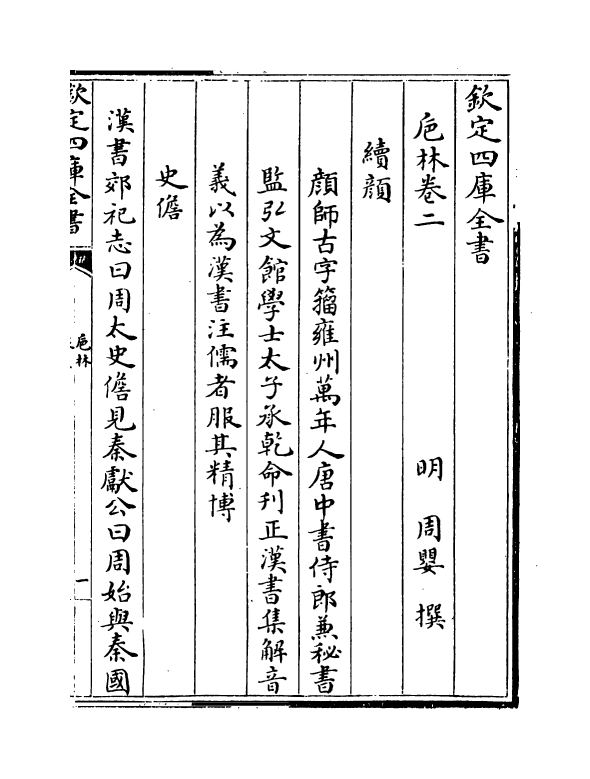 欽定四庫全書
巵林卷二
明 周嬰 撰
續顔
顔師古字籀雍州萬年人唐中書侍郎兼秘書
監弘文館學士太子承乾命刋正漢書集解音
義以為漢書注儒者服其精博
史儋
漢書郊祀志曰周太史儋見秦獻公曰周始與秦國
欽定四庫全書
巵林
一